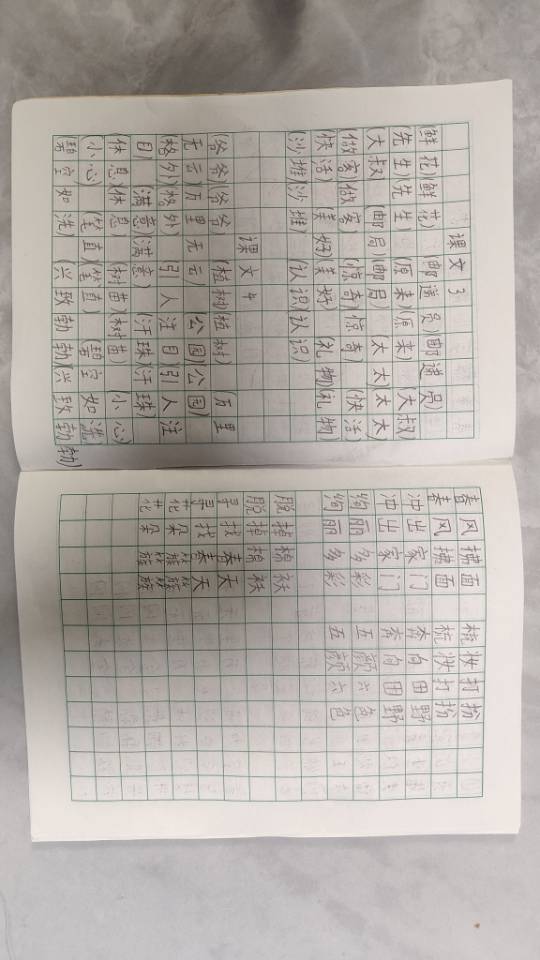 课文3
鲜花)鲜花) 邮递员)邮递员)
先生)先生) 原来(原来) (大叔
大叔) (邮局)邮局) (太太)太太)
做客)做客) 惊奇)惊奇) (快活
快活) (美好)美好) 礼物(礼物
(沙堆)沙堆) (认识)认识)
课文4
(爷爷)爷爷) (植树)植树) 万里
无云)万里无云) 公园(公园)
格外)格外) 引人注目引人注
目) 满意)满意) 汗珠)汗珠)
(休息)休息) (树苗)树苗) 小心
小心) 笔直)笔直) 碧空如洗
(碧空如洗 (兴致勃勃)(兴致勃勃)
春风拂面 梳妆打扮
春风拂面 梳妆打扮
冲出家门 奔向田野
冲出家门 奔向田野
绚丽多彩 五颜六色
绚丽多彩 五颜六色
脱掉棉袄
脱掉棉袄
寻找春天
寻找春天
花朵簇簇
花朵簇簇